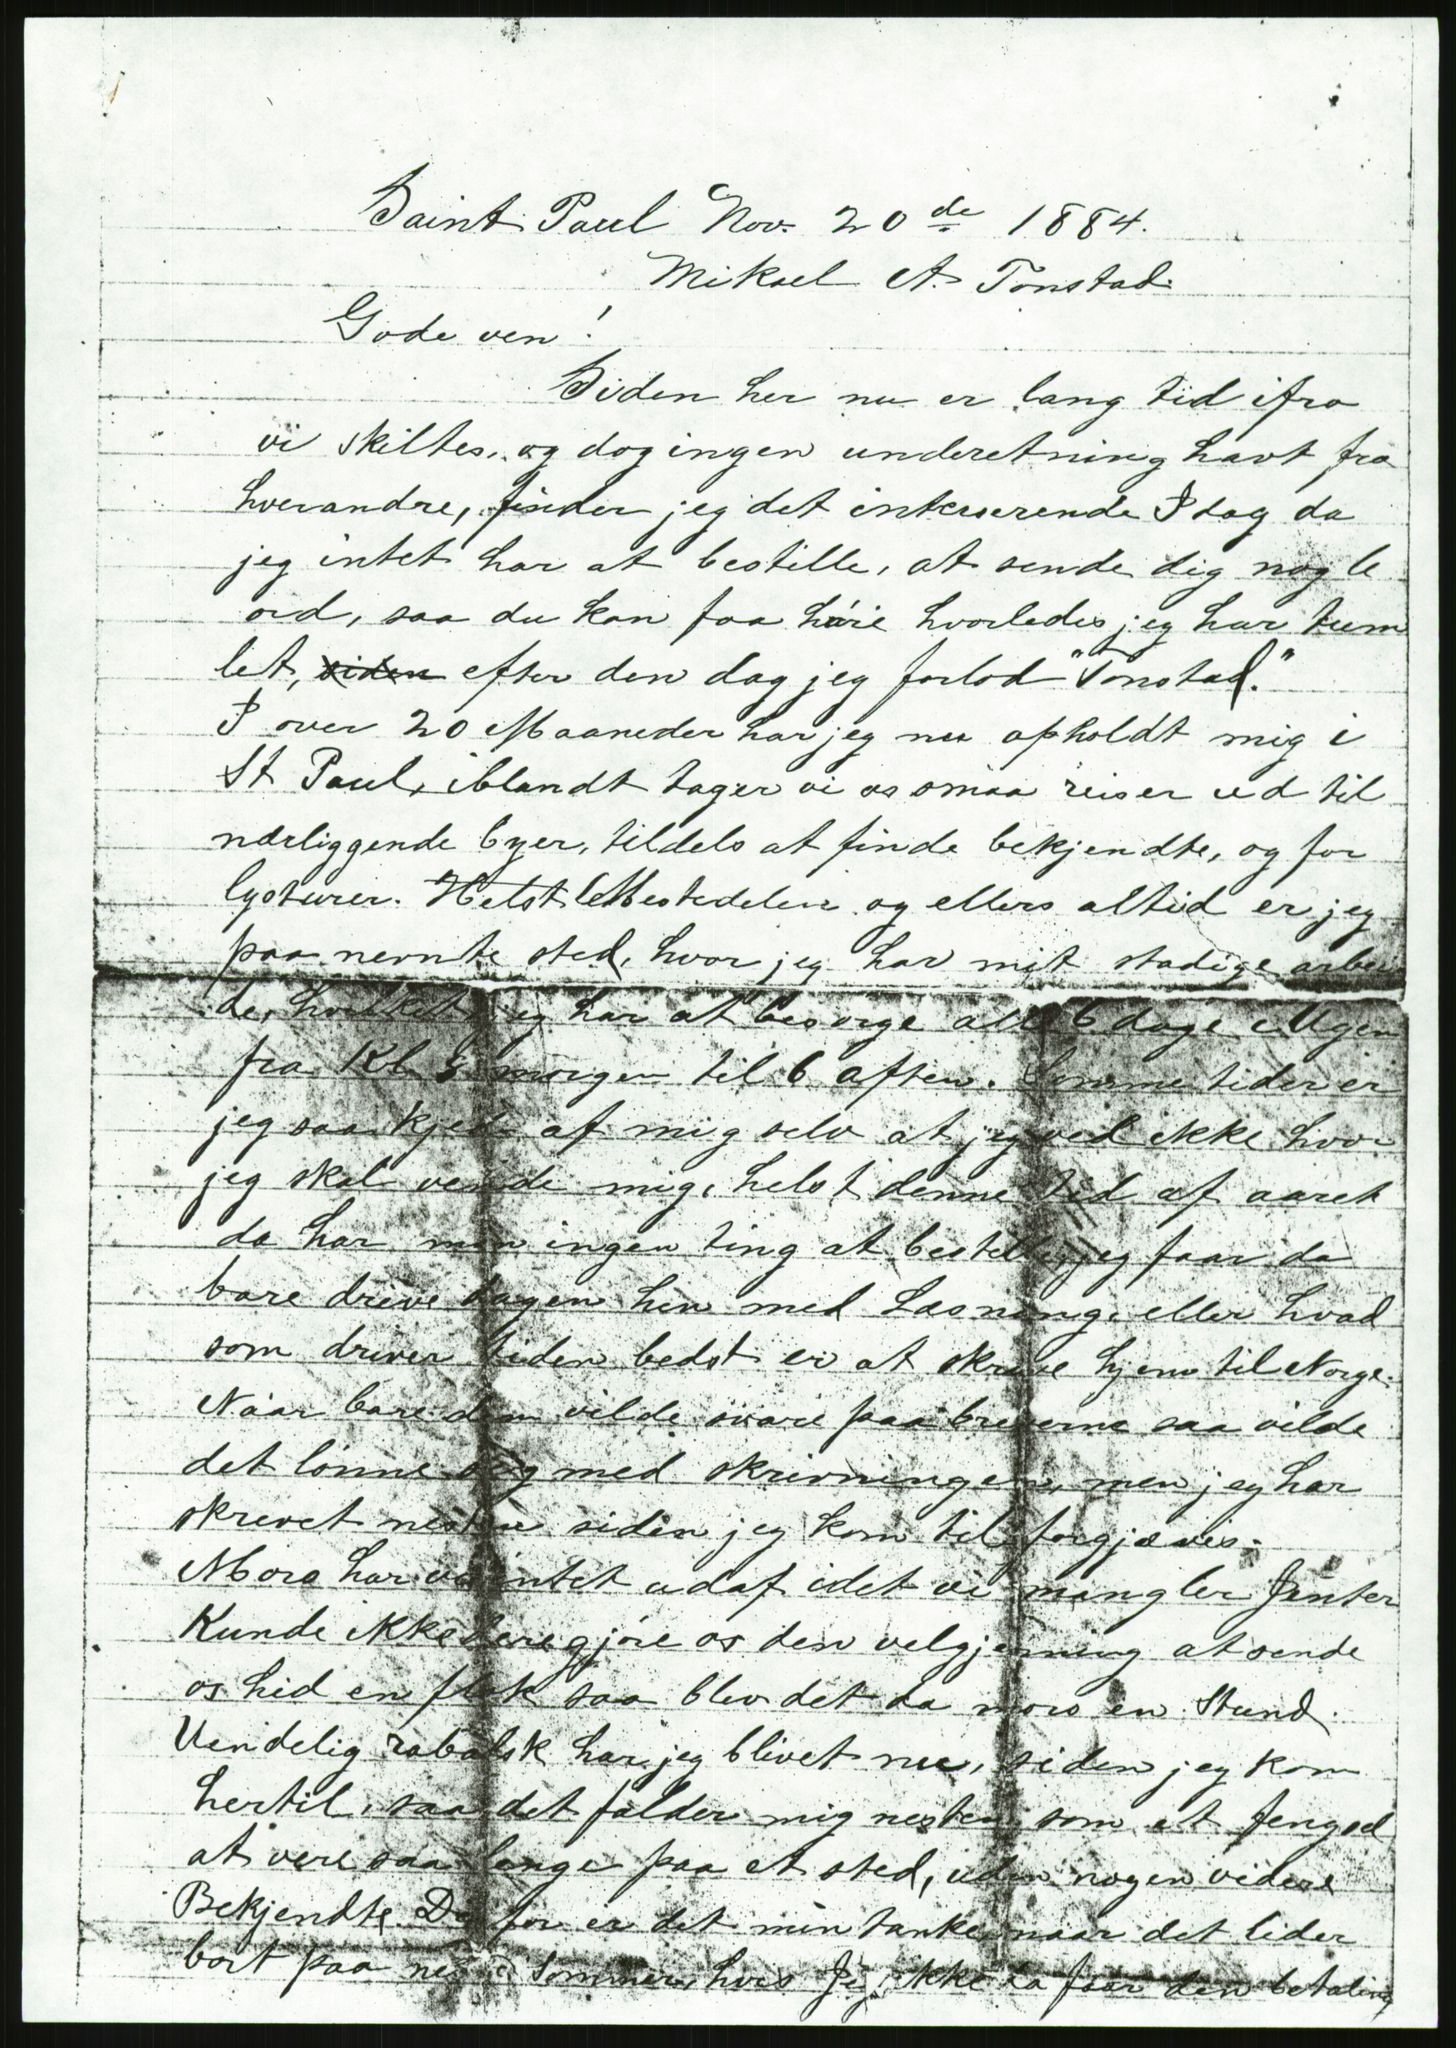 Saint Paul Nov. 20de 1884.
Mikael A. Tonstad.
Gode ven!
Siden her nu er lang tid ifra
vi skiltes, og dog ingen underetning havt fra
hverandre, finder jeg det intereserende I dag da
jeg intet har at bestille, at sende dig nogle
ord, saa du kan faa høre hvorledes jeg har tum
let, siden efter den dag jeg forlod "Tonstad."
I over 20 Maaneder har jeg nu opholdt mig i
St Paul, iblandt tager vi os smaa reiser ud til
nærliggende byer, tildels at finde bekjendte, og for
lysturer. Helst Mestedelen og ellers altid er jeg
paa nevnte sted, hvor jeg har mit stadige arbei
de, hvilket jeg har at besørge alle 6 dage i Ugen
fra Kl morgen til 6 aften. Somme tider er
jeg saa kjed af mig selv at jeg ved ikke hvor
jeg skal vende mig, helst denne tid af aaret
da har man ingen ting at bestille, jeg faar da
bare drive dagen hen med Læsning, eller hvad
som driver tiden bedst er at skrive hjem til Norge.
Naar bare dem vilde svare paa breverne saa vilde
det lønne sig med skrivningen, men jeg har
skrevet nesten siden jeg kom til forgjæves.
Moro har vi intet udaf idet vi mangler Jenter
Kunde ikke dere gjøre os den velgjerning at sende
os hid en flok saa blev det da moro en Stund.
Uendelig rabalsk har jeg blivet nu, siden jeg kom
hertil, saa det falder mig nesten som et fengsel
at vere saa lenge paa et sted, uden nogen videre
Bekjendte. Derfor er det min tanke, naar det lider
bort paa næste Sommer, hvis Jeg ikke da faar den betaling